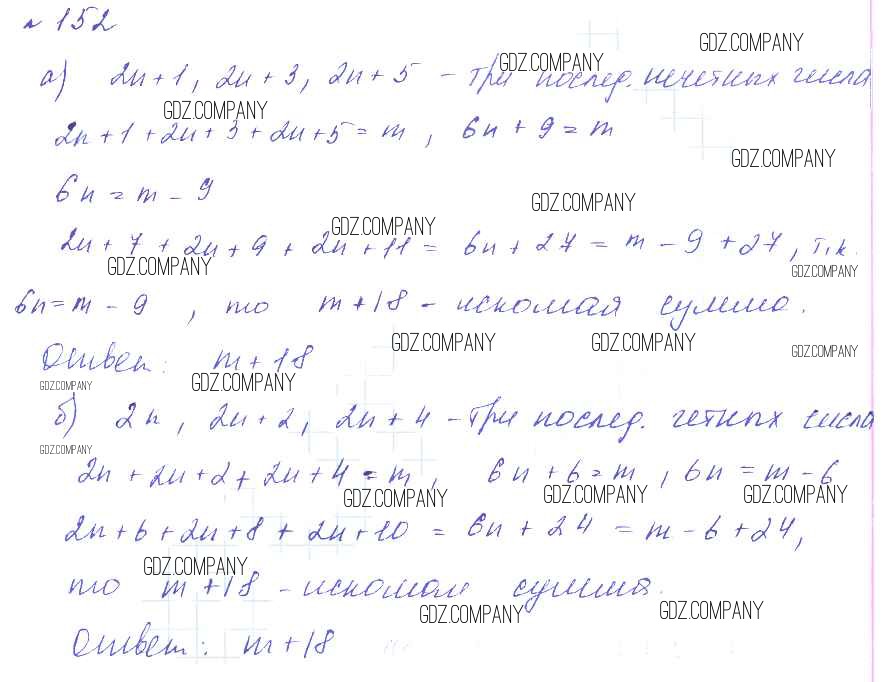 № 152
GDZ.COMPANY
а) 2n+1, 2n+3, 2n+5 - три послед. нечетных числа
GDZ.COMPANY
GDZ.COMPANY
2n+1+2n+3+2n+5=m, 6n+9=m
GDZ.COMPANY
6n=m-9
GDZ.COMPANY
GDZ.COMPANY
2n+7+2n+9+2n+11= 6n+27=m-9+27, т.к.
GDZ.COMPANY
GDZ.COMPANY
6n=m-9, то m+18 - искомая сумма.
GDZ.COMPANY GDZ.COMPANY GDZ.COMPANY
Ответ: m+18
GDZ.COMPANY GDZ.COMPANY
б) 2n, 2n+2, 2n+4 - три послед. четных числа
GDZ.COMPANY
2n+2n+2+2n+4=m, 6n+6=m, 6n=m-6
GDZ.COMPANY GDZ.COMPANY GDZ.COMPANY
2n+6+2n+8+2n+10 = 6n+24 = m-6+24,
GDZ.COMPANY
то m+18 - искомая сумма.
GDZ.COMPANY GDZ.COMPANY
Ответ: m+18